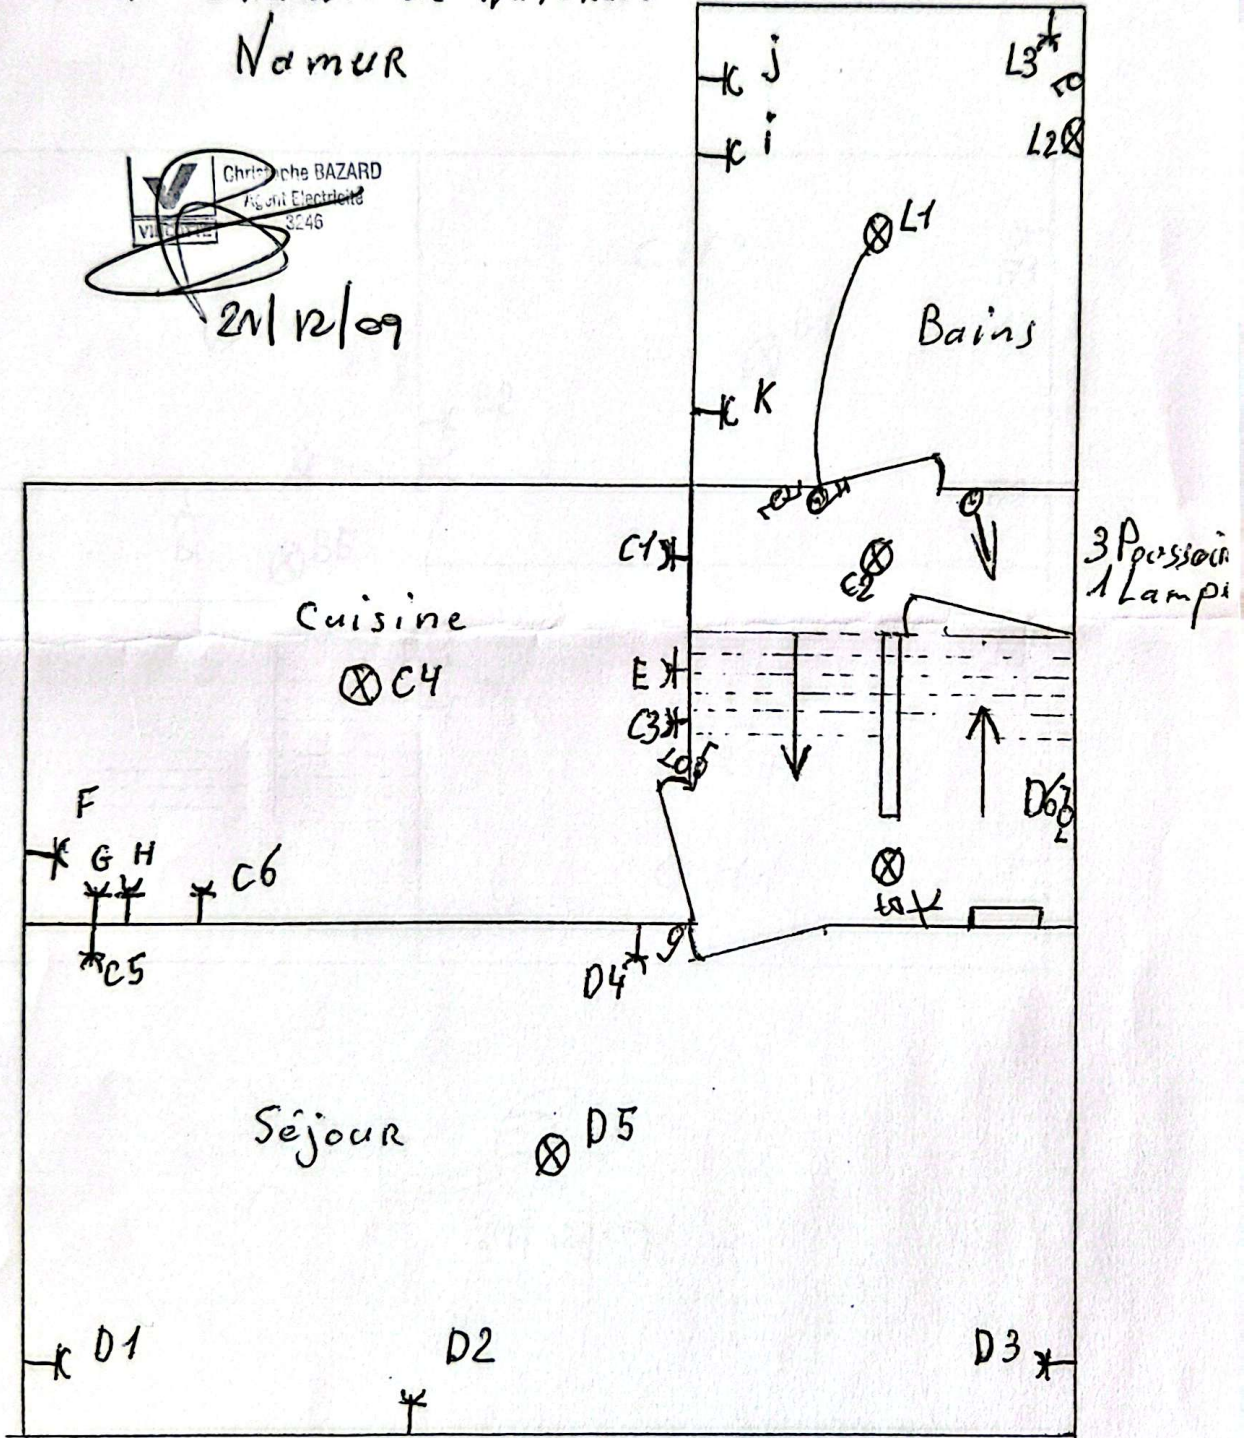 Namur
Christophe BAZARD
Agent Electricité
3246
21/12/09
j
i
L3
L2
L1
Bains
K
C1
C2
3 Poussoir
1 Lampe
Cuisine
C4
E
C3
D6
F
G H
C6
C5
D4
Séjour
D5
D1
D2
D3